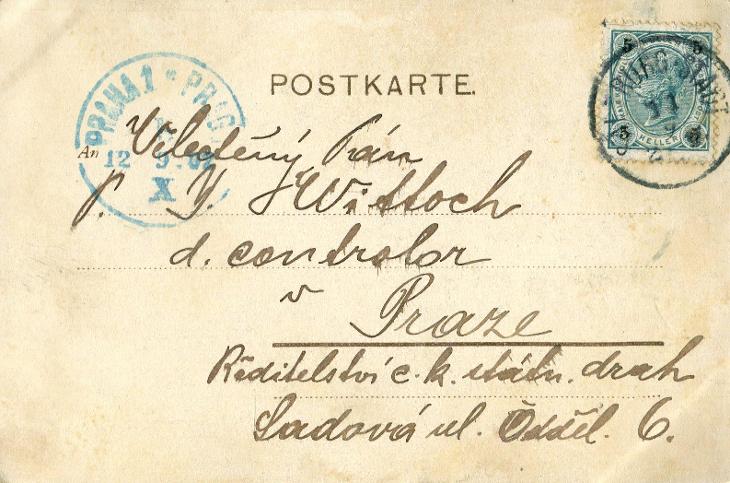 POSTKARTE.
PRAHA 1 * PRAG
12 9.02
X
5 5
5 5
HELLER
An Veleděný Pán
p. J. Wittoch
d. controlor
v Praze
Ředitelství c. k. státn. drah
Sadová ul. Odděl. 6.